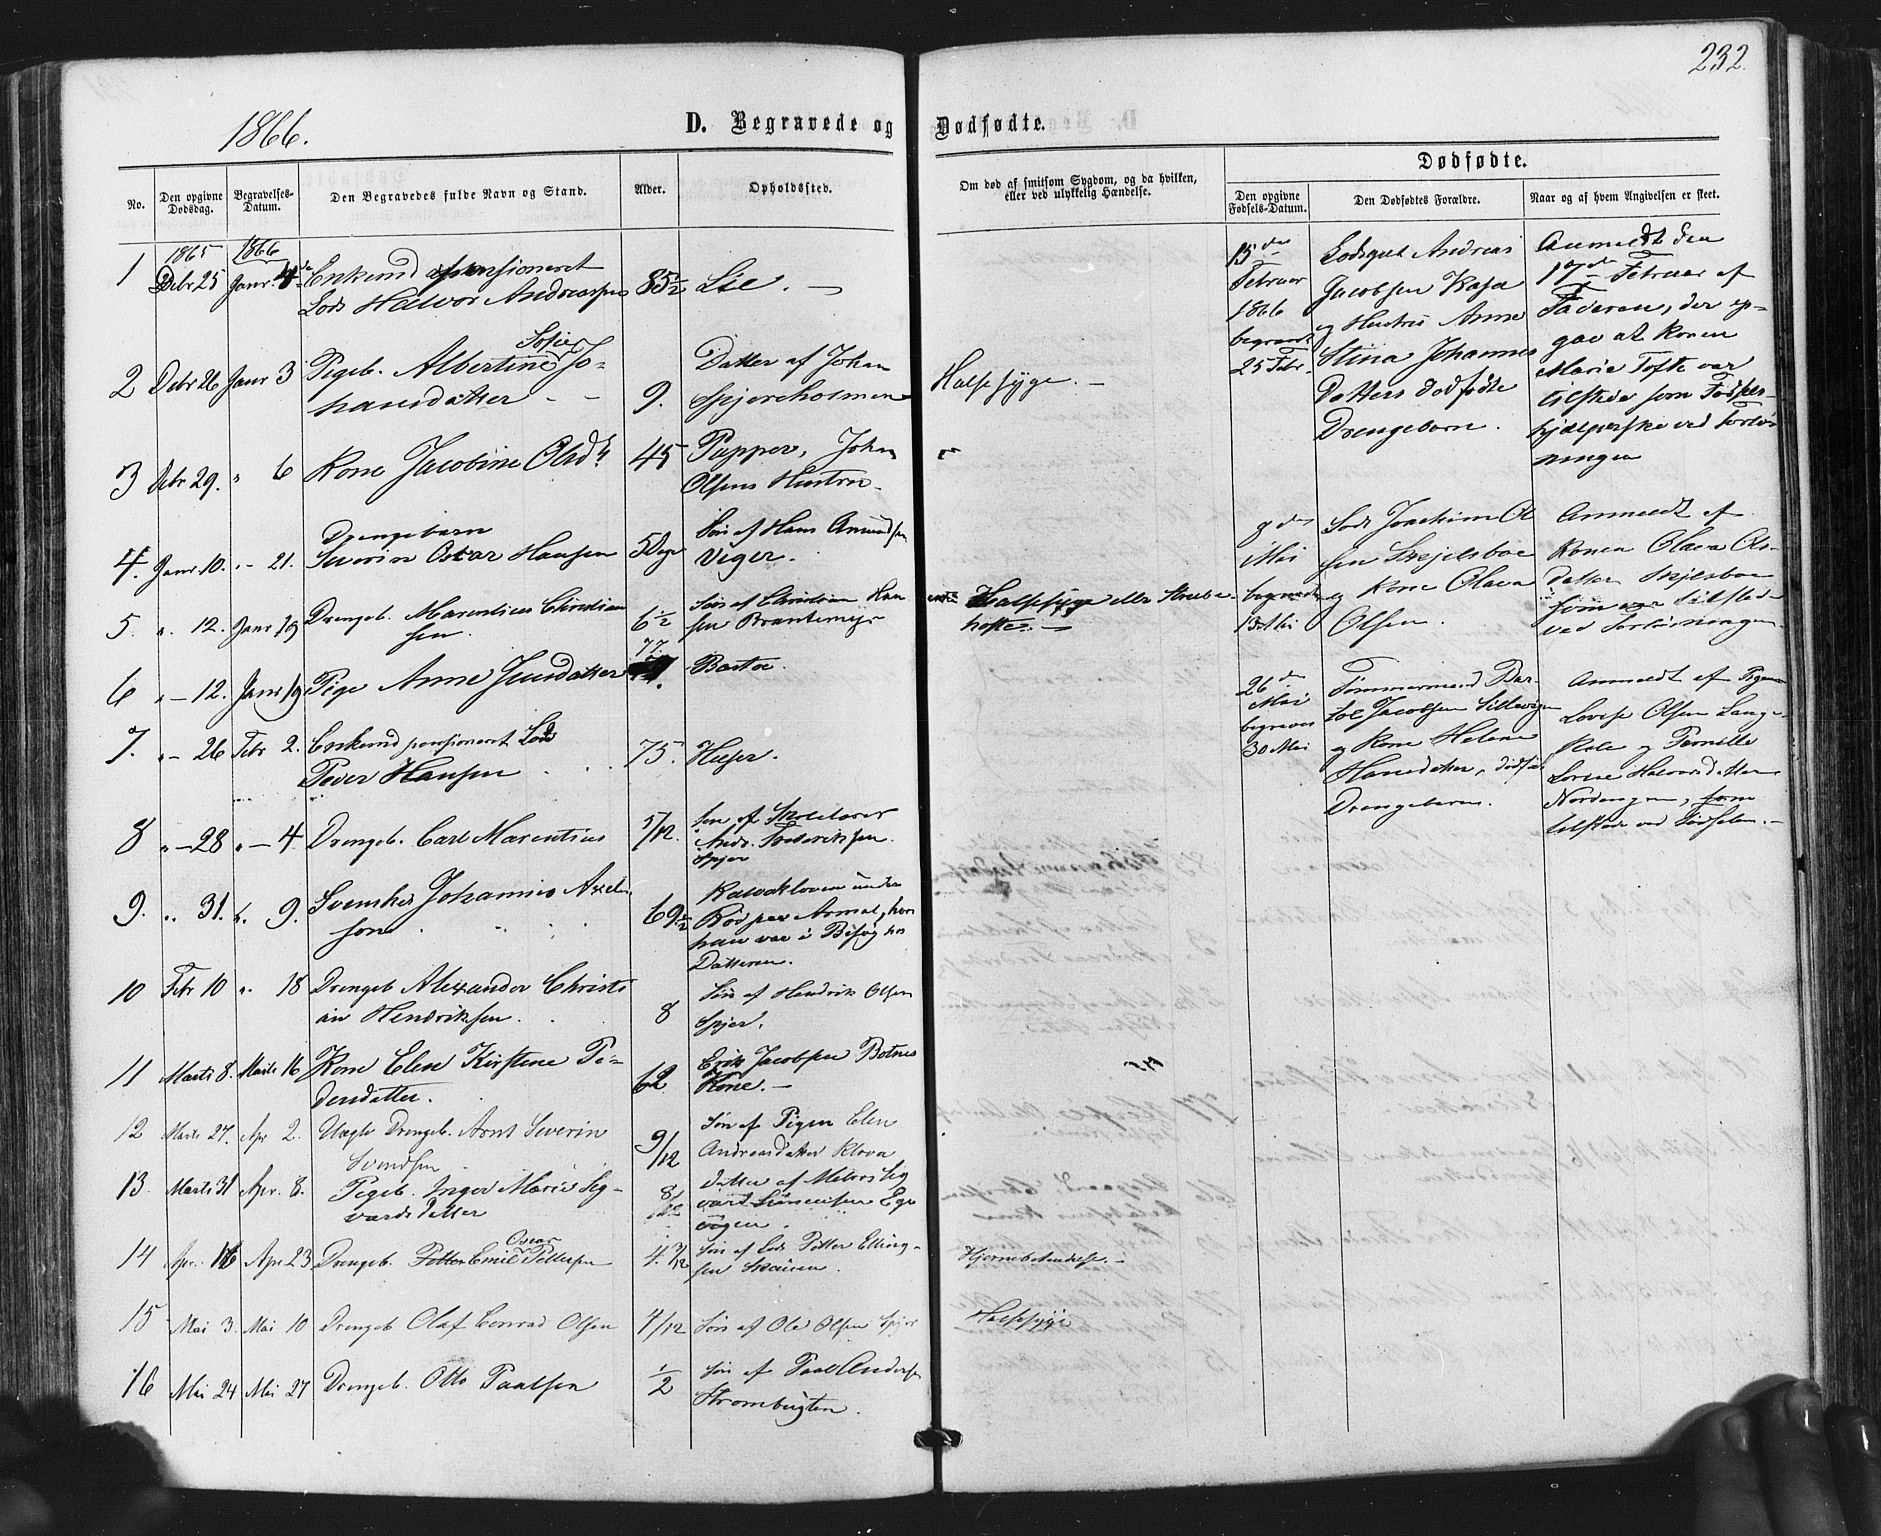 232.
1866.
D. Begravede og Dødfødte.
No.
Den opgivne Dødsdag.
Begravelses-Datum.
Den Begravedes fulde Navn og Stand.
Alder.
Opholdssted.
Om død af smitsom Sygdom, og da hvilken,
eller ved ulykkelig Hændelse.
Dødfødte.
Den opgivne Fødsels-Datum.
Den Dødfødtes Forældre.
Naar og af hvem Angivelsen er skeet.
1865 1866
1 Debr 25 Janr. 4de Enkemd pensioneret
Lods Halvor Andreassen 85½ Lie. —
2 Debr 26 Janr 3 Pigeb. Albertine Sofie Jo-
hansdatter - - 9. Datter af Johan
Spjæreholmen Halssyge. —
3 Debr 29. " 6 Kone Jacobine Olsdr 45 Papper, Johan
Olsens Hustru.
4. Janr 10. " - 21. Drengebarn
Severin Oskar Hansen 5 Dage Søn af Hans Amundsen
Viger.
5. " 12. Janr 19 Drengeb. Marentius Christian
sen. 6½ Søn af Christian Han
sen Brantemyr Halssyge eller Strube-
hoste. —
6 " - 12. Janr 19 Pige Anne Jensdatter 77. Bastøe.
7. " - 26 Febr 2. Enkemd pensioneret Lods
Peder Hansen 75. Hæser.
8 " - 28 " - 4 Drengeb. Carl Marentius 5/12. Søn af Skolelærer
Andr. Frederiksen.
Spjær
9. " 31. " 9. Svensker Johannes Axel
son 69½ Kalvekloven under
han var i Besøg hos
Datteren.
10 Febr 10 " 18 Drengeb Alexander Christi
an Hendriksen. 8 Søn af Hendrik Olsen
Spjær.
11 Marts 8. Marts 16 Kone Elen Kirstine Pe-
dersdatter. 62 Erik Jacobsen Botnes
Kone. —
12 Marts 27. Apr 2. Uægte Drengeb. Arnt Severin
Svendsen 9/12 Søn af Pigen Elen
Andreasdatter Klova
13. Marts 31 Apr. 8. Pigeb. Inger Marie Sig-
vardsdatter 8/12 Datter af Sig
vard Simensen
vogen.
14 Apr. 16 Apr 23 Drengeb. Petter Emil Oscar Pettersen 4. 3/12 Søn af Lods Petter Elling-
sen Skauen. Hjernebetændelse. —
15 Mai 3. Mai 10 Drengeb Olaf Conrad Olsen 4/12 Søn af Ole Olsen Spjær Halssyge
16 Mai 24 Mai 27 Drengeb. Otto Paalsen ½ Søn af Paal Anders
Strombugten.
15de
Februar
1866
begravet
25 Febr.
Lodsgut Andreas
Jacobsen Kasa
og Hustru Anne
Stina Johannes
Datters dødfødte
Drengebarn.
Anmeldt den
17de Februar af
Faderen, der op-
gav at Konen
Maria Tofte var
tilstede som Fødsels-
hjælperske ved Forløs
ningen
8de
Mai
begravet
13 Mai
Lods Joachim Ol
sen Skjelsboe
og Kone Olava
Olsen.
Anmeldt af
Konen Olava Ols-
datter Skjelsboe
som var tilstede
ved Forløsningen.
26de
Mai
begraves
30 Mai
Tømmermand Bar-
tol Jacobsen
og Kone Helene
Hansdatter, dødfødt
Drengebarn.
Anmeldt af Pigerne
Lovise Olsen Lange-
og Pernille
Lovise Halvorsdatter
Nordengen, som
tilstede ved Fødselen. —